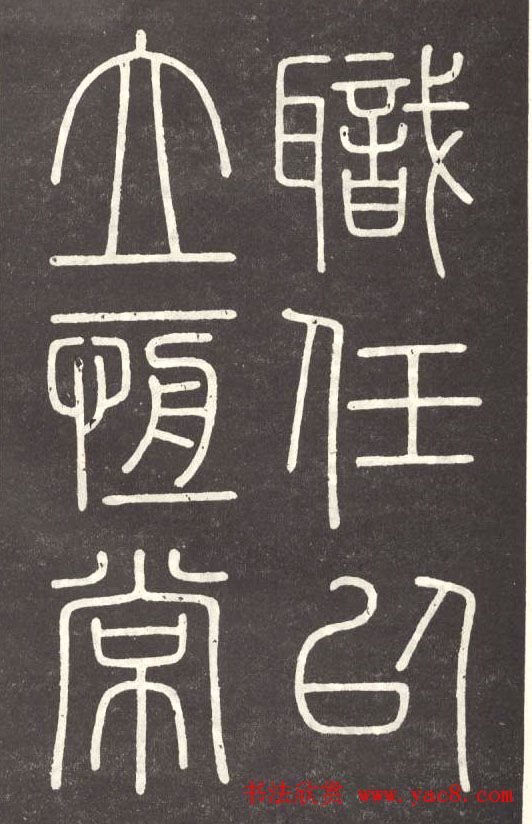 職任㠯
立恆常
书法欣赏 www.yac8.com